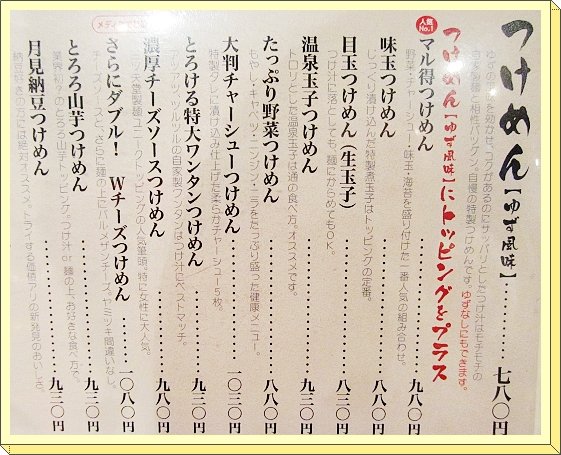 つけめん【ゆず風味】………七八〇円
人気No.1
つけめん【ゆず風味】にトッピングをプラス
マル得つけめん………九八〇円
野菜・チャーシュー・味玉・海苔を盛り付けた一番人気の組み合わせ。
味玉つけめん………八八〇円
じっくり漬け込んだ特製煮玉子はトッピングの定番。
目玉つけめん（生玉子）………八三〇円
つけ汁に落としても、麺にからめてもOK。
温泉玉子つけめん………九三〇円
トロリとした温泉玉子は通の食べ方。オススメです。
たっぷり野菜つけめん………八八〇円
もやし・キャベツ・ニンジン・ニラをたっぷり盛った健康メニュー。
大判チャーシューつけめん………一〇三〇円
特製タレに漬け込み仕上げた柔らかチャーシュー5枚。
とろける特大ワンタンつけめん………九八〇円
アツアツ、ツルツルの自家製ワンタンはつけ汁にベストマッチ。
濃厚チーズソースつけめん………九八〇円
ユニークトッピングの人気筆頭、特に女性に大人気。
さらにダブル！Wチーズつけめん………一〇八〇円
チーズソースと、さらに麺の上にパルメザンチーズ、ヤミツキ間違いなし。
とろろ山芋つけめん………九三〇円
業界初？のとろろ山芋トッピング。つけ汁or麺の上、お好きな食べ方で。
月見納豆つけめん………九三〇円
納豆好きの方には絶対オススメ。トライする価値アリの新発見のおいしさ。